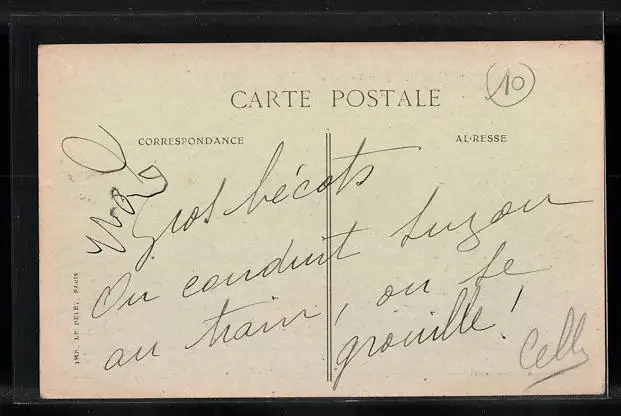 10
CARTE POSTALE
CORRESPONDANCE
ADRESSE
Gros bécots
On conduit Suzon
au train, on se
grouille!
IMP. LE DELEY, PARIS